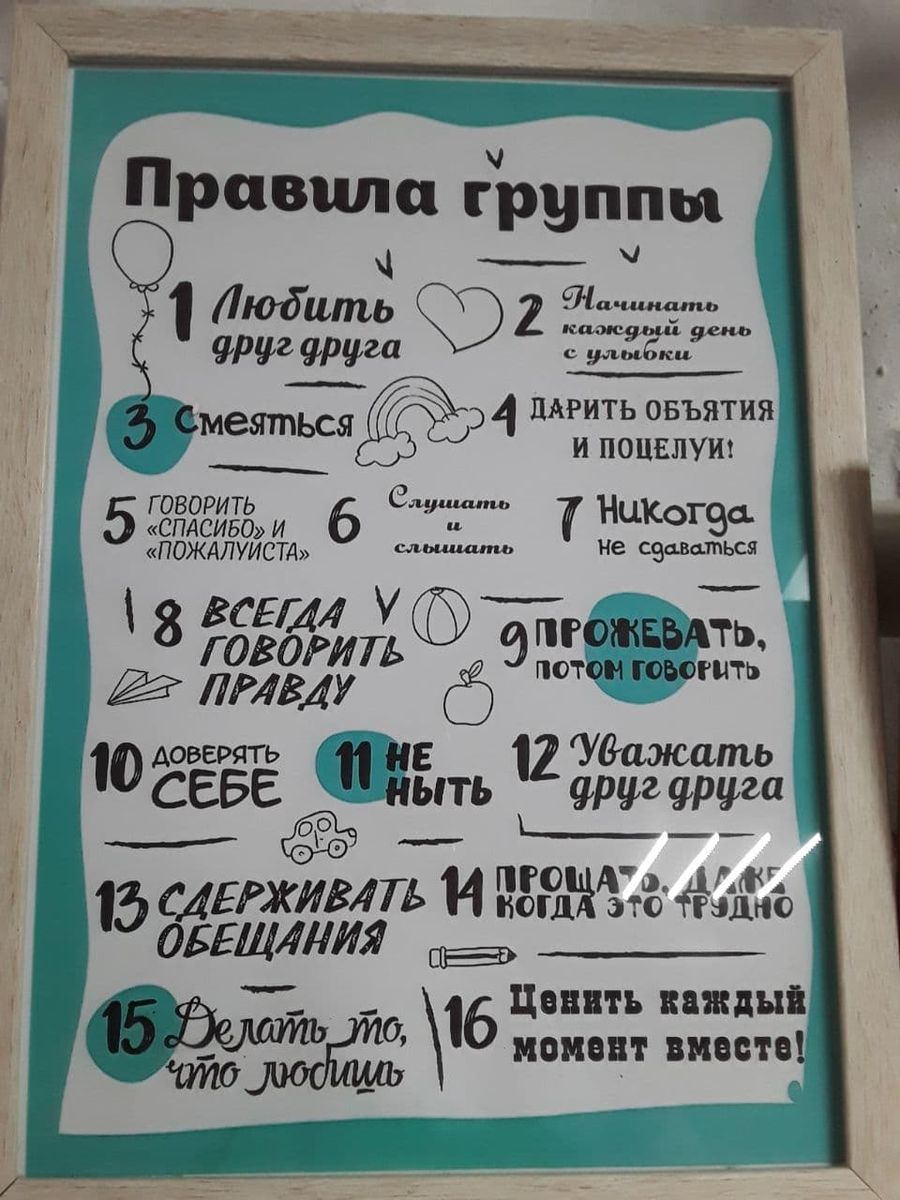 Правила группы
1 Любить
друг друга
2 Начинать
каждый день
с улыбки
3 Смеяться
4 ДАРИТЬ ОБЪЯТИЯ
И ПОЦЕЛУИ!
5 ГОВОРИТЬ
«СПАСИБО» И
«ПОЖАЛУИСТА»
6 Слушать
и
слышать
7 Никогда
не сдаваться
8 ВСЕГДА
ГОВОРИТЬ
ПРАВДУ
9 ПРОЖЕВАТЬ,
ПОТОМ ГОВОРИТЬ
10 ДОВЕРЯТЬ
СЕБЕ
11 НЕ
НЫТЬ
12 Уважать
друг друга
13 СДЕРЖИВАТЬ
ОБЕЩАНИЯ
14 ПРОЩАТЬ, ДАЖЕ
КОГДА ЭТО ТРУДНО
15 Делать то,
что любишь
16 Ценить каждый
момент вместе!